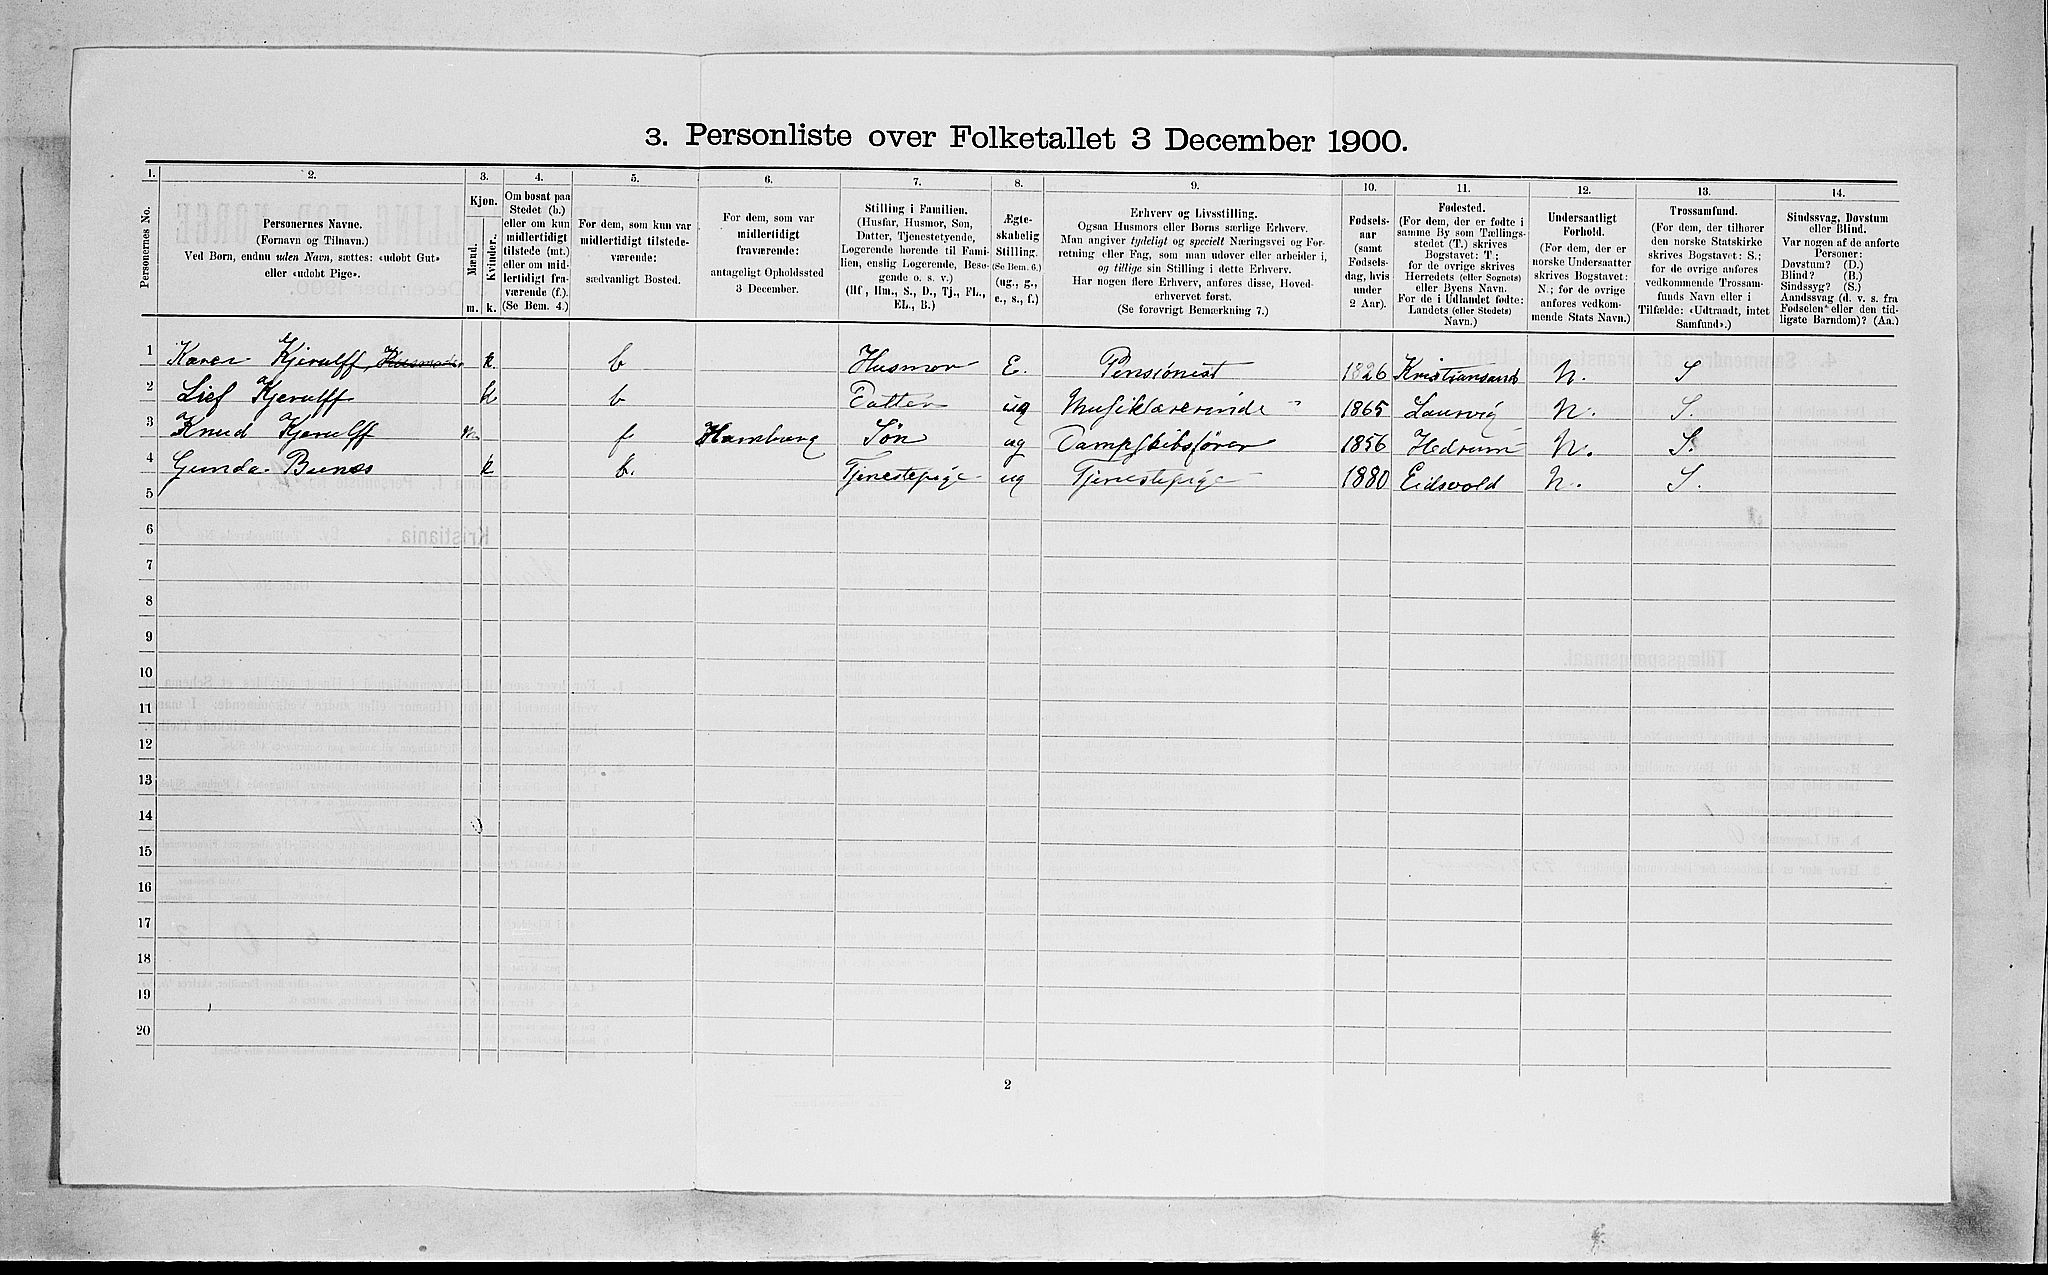 3. Personliste over Folketallet 3 December 1900.
1. 2. 3. 4. 5. 6. 7. 8. 9. 10. 11. 12. 13. 14.
Personernes No.
Personernes Navne.
(Fornavn og Tilnavn.)
Ved Børn, endnu uden Navn, sættes: «udøbt Gut»
eller «udøbt Pige».
Kjøn.
Mænd.
Kvinder.
m. k.
Om bosat paa
Stedet (b.)
eller om kun
midlertidigt
tilstede (mt.)
eller om mid-
lertidigt fra-
værende (f.).
(Se Bem. 4.)
For dem, som kun var
midlertidigt tilstede-
værende:
sædvanligt Bosted.
For dem, som var
midlertidigt
fraværende:
antageligt Opholdssted
3 December.
Stilling i Familien.
(Husfar, Husmor, Søn,
Datter, Tjenestetyende,
Logerende hørende til Fami-
lien, enslig Logerende, Besø-
gende o. s. v.)
(Hf., Hm., S., D., Tj., FL.,
EL., B.)
Ægte-
skabelig
Stilling.
(Se Bem. 6.)
(ug., g.,
e., s., f.)
Erhverv og Livsstilling.
Ogsaa Husmors eller Børns særlige Erhverv.
Man angiver tydeligt og specielt Næringsvei og For-
retning eller Fag, som man udøver eller arbeider i,
og tillige sin Stilling i dette Erhverv.
Har nogen flere Erhverv, anføres disse, Hoved-
erhvervet først.
(Se forøvrigt Bemærkning 7.)
Fødsels-
aar
(samt
Fødsels-
dag, hvis
under
2 Aar).
Fødested.
(For dem, der er fødte i
samme By som Tællings-
stedet (T.) skrives
Bogstavet: T;
for de øvrige skrives
Herredets (eller Sognets)
eller Byens Navn.
For de i Udlandet fødte:
Landets (eller Stedets)
Navn.)
Undersaatligt
Forhold.
(For dem, der er
norske Undersaatter
skrives Bogstavet:
N.; for de øvrige
anføres vedkom-
mende Stats Navn.)
Trossamfund.
(For dem, der tilhører
den norske Statskirke
skrives Bogstavet: S.;
for de øvrige anføres
vedkommende Trossam-
funds Navn eller i
Tilfælde: «Udtraadt, intet
Samfund».)
Sindssvag, Døvstum
eller Blind.
Var nogen af de anførte
Personer:
Døvstum? (D.)
Blind? (B.)
Sindssyg? (S.)
Aandssvag (d. v. s. fra
Fødselen eller den tid-
ligste Barndom)? (Aa.)
1 Karen Kjerulff k. b Husmor E. Pensionist 1826 Kristiansand N. S
2 Kjerulff k b Datter ug Musiklærerinde 1865 Laurvig N. S.
3 Knud Kjerulff m f Hamburg Søn ug Dampskibsfører 1856 Hedrum N. S.
4 Gunda k b. Tjenestepige ug Tjenestepige 1880 Eidsvold N. S.
5
6
7
8
9
10
11
12
13
14
15
16
17
18
19
20
2